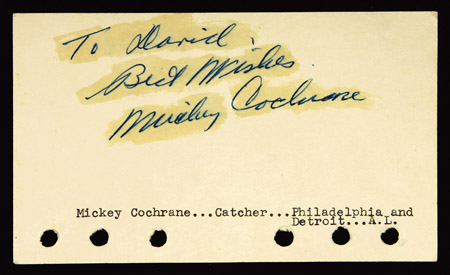 To David.
Best Wishes
Mickey Cochrane
Mickey Cochrane...Catcher...Philadelphia and
Detroit...A.L.